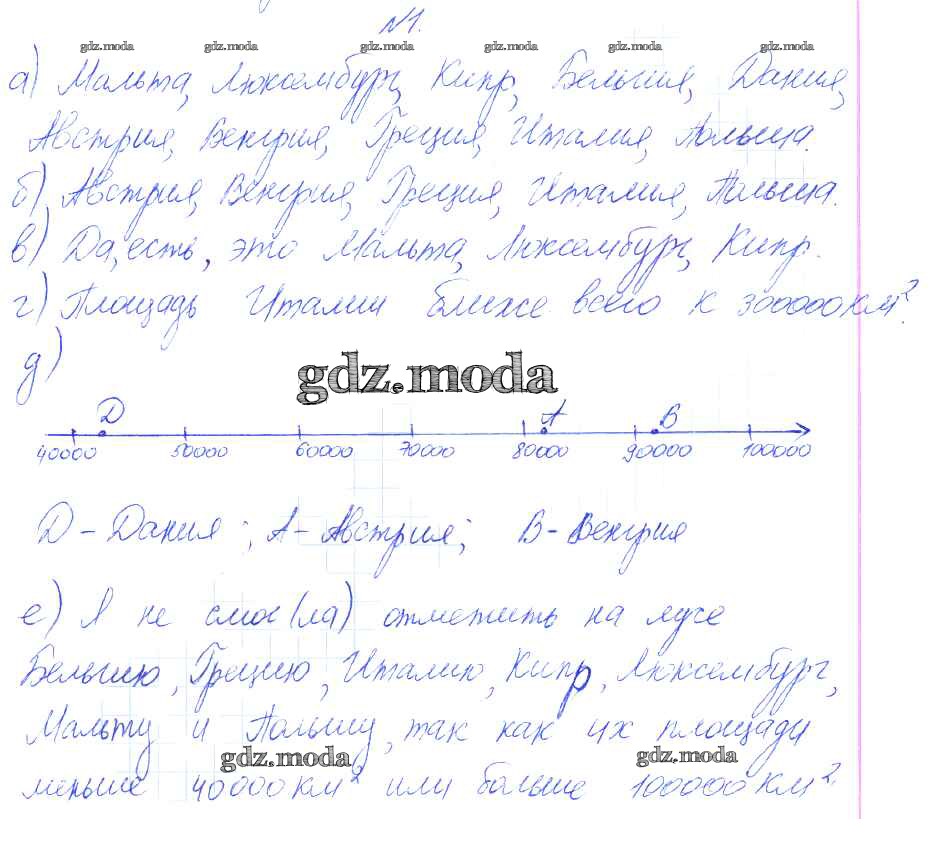 №1.
gdz.moda gdz.moda gdz.moda gdz.moda gdz.moda gdz.moda
а) Мальта, Люксембург, Кипр, Бельгия, Дания,
Австрия, Венгрия, Греция, Италия, Польша.
б) Австрия, Венгрия, Греция, Италия, Польша.
в) Да, есть, это Мальта, Люксембург, Кипр.
г) Площадь Италии ближе всего к 300000 км².
д)
gdz.moda
D А В
40000 50000 60000 70000 80000 90000 100000
D - Дания; А - Австрия; В - Венгрия
е) Я не смог(ла) отметить на луче
Бельгию, Грецию, Италию, Кипр, Люксембург,
Мальту и Польшу, так как их площади
gdz.moda gdz.moda
меньше 40000 км² или больше 100000 км²